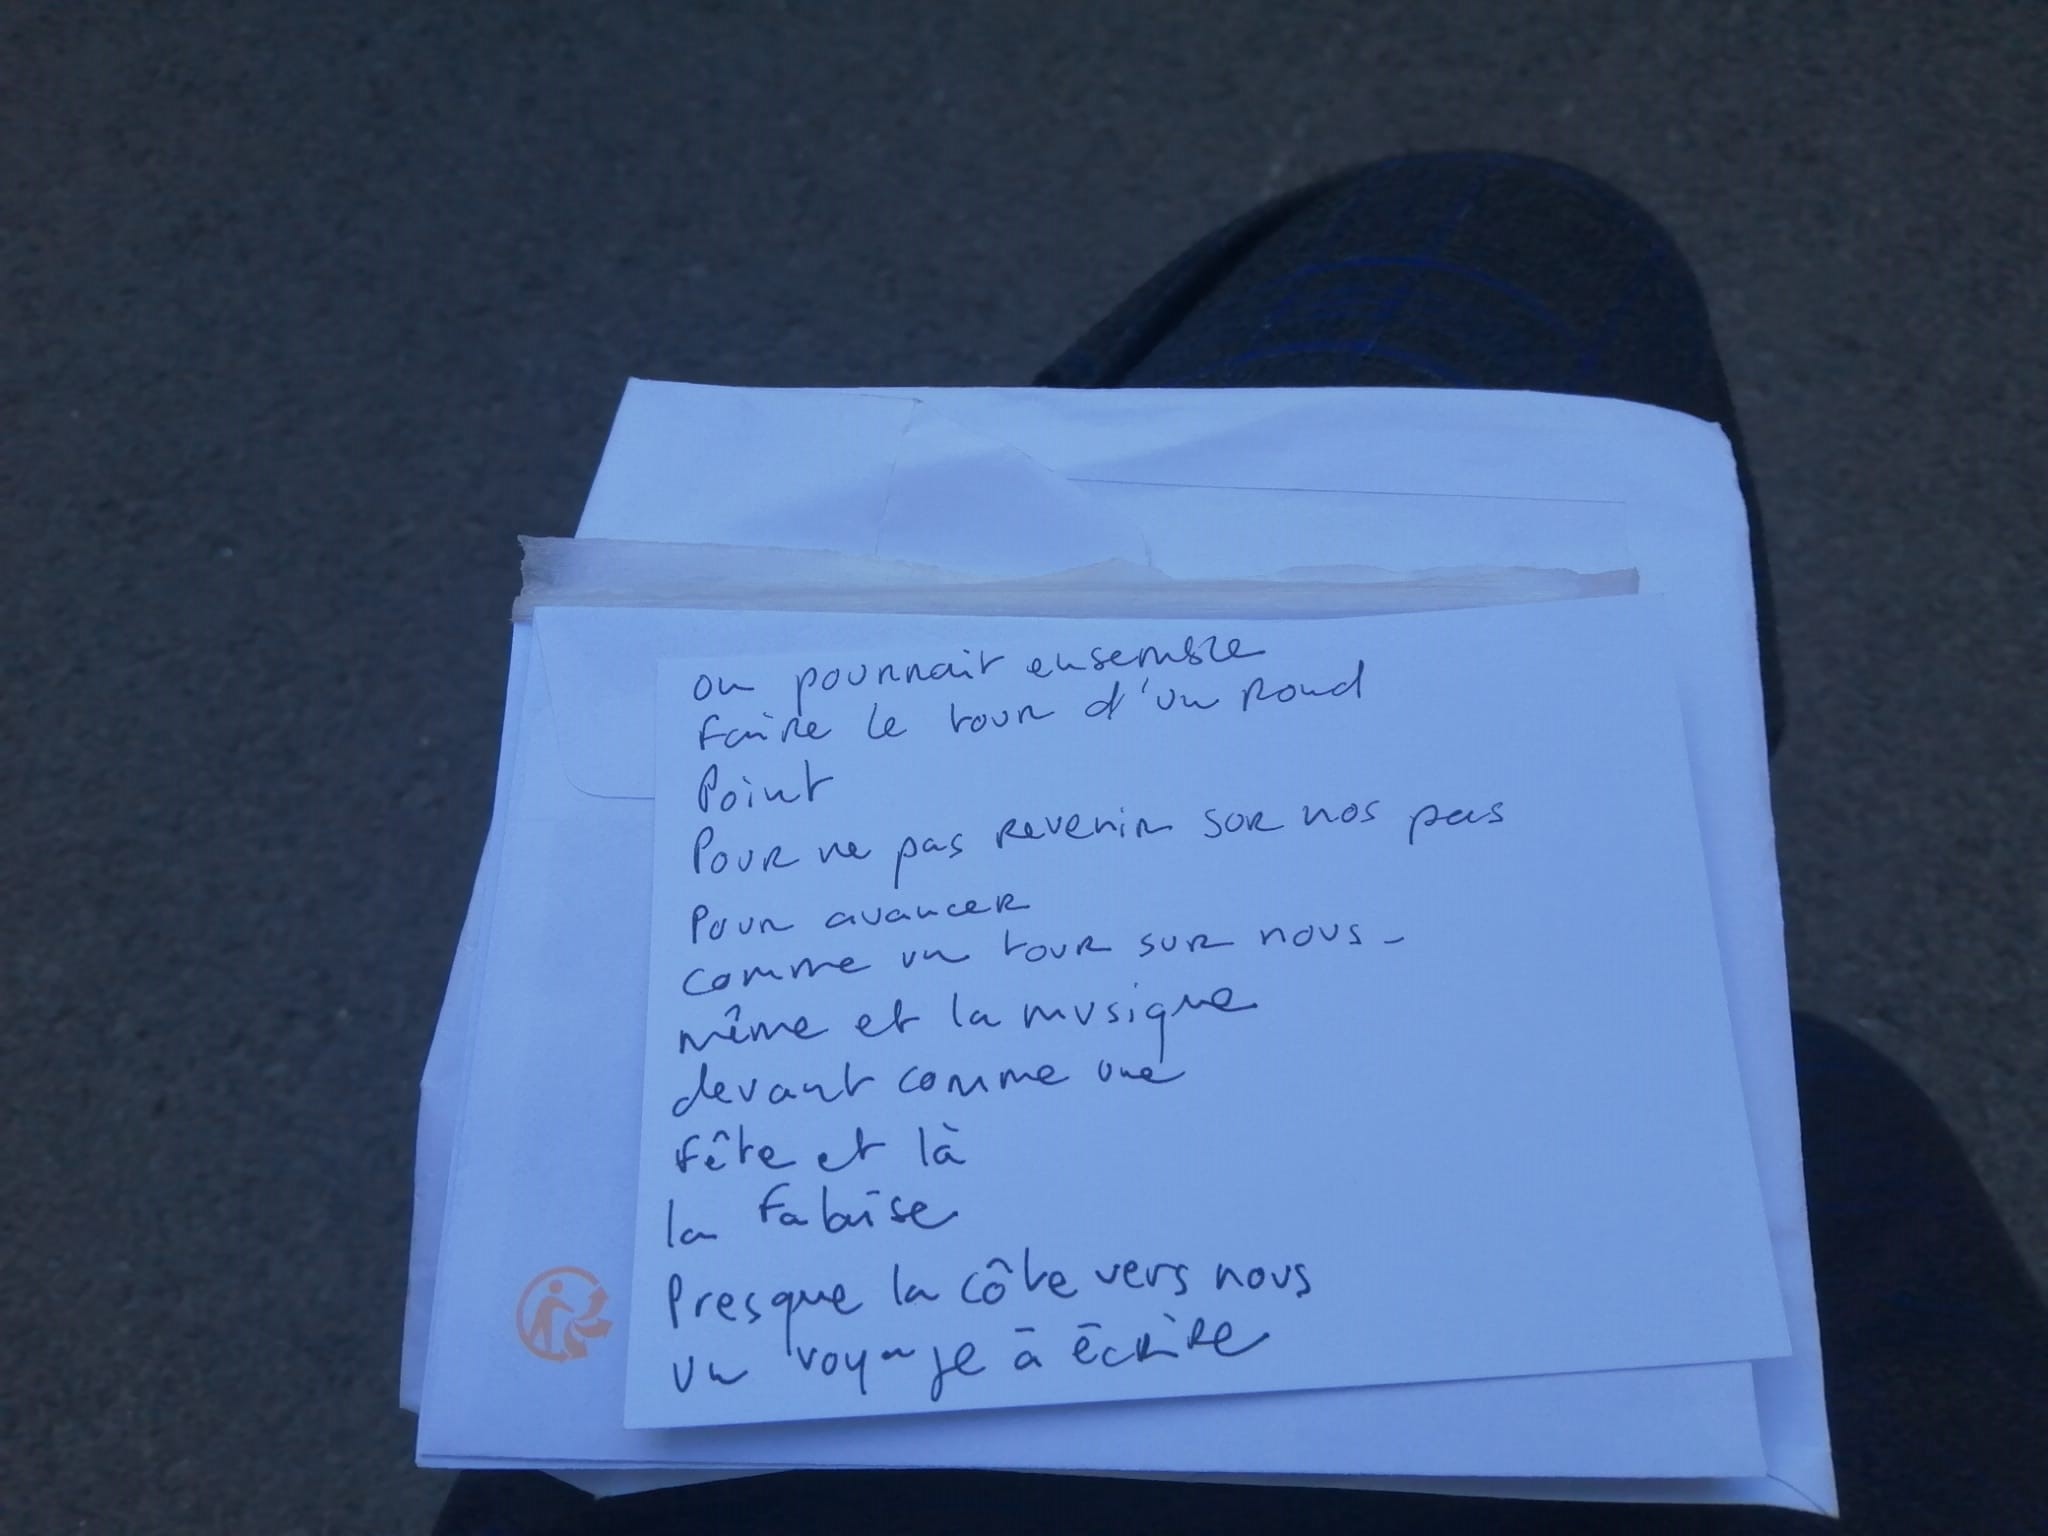 on pourrait ensemble
faire le tour d'un rond
Point
Pour ne pas revenir sur nos pas
Pour avancer
comme un tour sur nous-
même et la musique
devant comme une
fête et là
la falaise
Presque la côte vers nous
un voyage à écrire